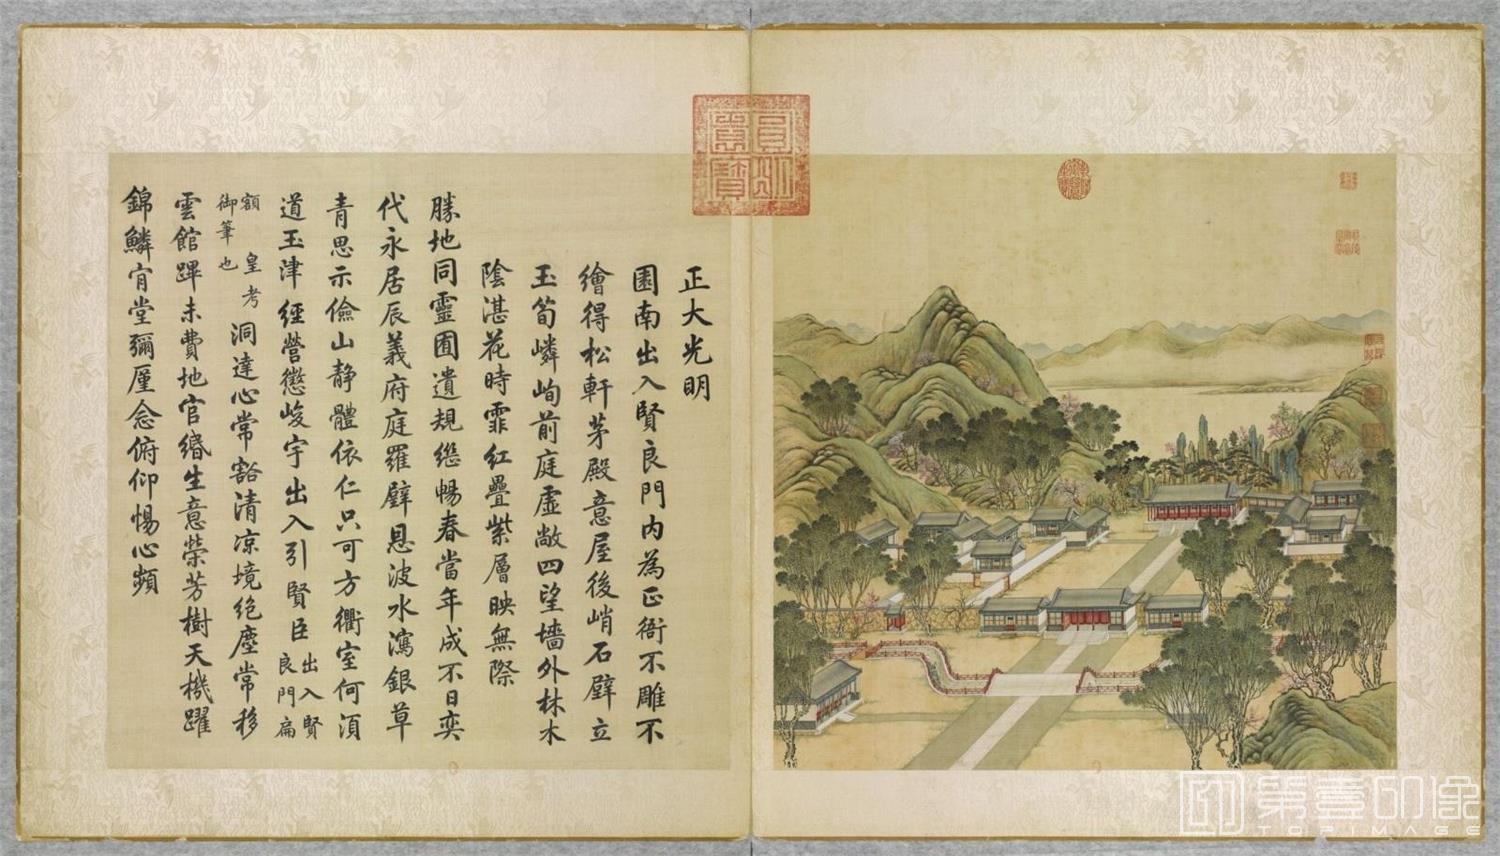 正大光明
園南出入賢良門內為正衙不雕不
繪得松軒茅殿意屋後峭石壁立
玉筍嶙峋前庭虛敞四望墻外林木
陰湛花時霏紅疊紫層映無際
勝地同靈囿遺規繼暢春當年成不日奕
代永居辰義府庭羅壁恩波水瀉銀草
青思示儉山静體依仁只可方衢室何湏
道玉津經營懲峻宇出入引賢臣出入賢
良門扁
額 皇考
御筆也
洞達心常豁清涼境絶塵常移
雲館蹕未費地官緡生意榮芳樹天機躍
錦鱗宵堂彌厪念俯仰惕心頻
圓明園寶
第壹印像
TOPIMAGE